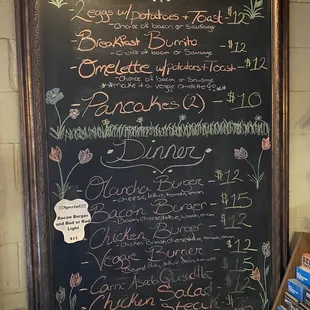 2 eggs w/potatoes + Toast - $12
- Choice of bacon or Sausage
- Breakfast Burrito - $12
- Choice of bacon or Sausage
- Omelette w/potatoes + Toast - $12
- Choice of bacon or Sausage
make it a veggie Omelette
- Pancakes (2) - $10
Dinner
- Olancha Burger - $12
Cheese, lettuce, tomato, onion
- Bacon Burger - $15
Cheese, lettuce, tomato, onion
- Chicken Burger - $12
Chicken Breast, cheese, lettuce, tomato, onion
- Veggie Burger - $12
lettuce, tomato, onion
Carne Asada Quesadilla
Chicken Salad
Steak
Special
Bacon Burger
and Bud or Bud
Light
$17